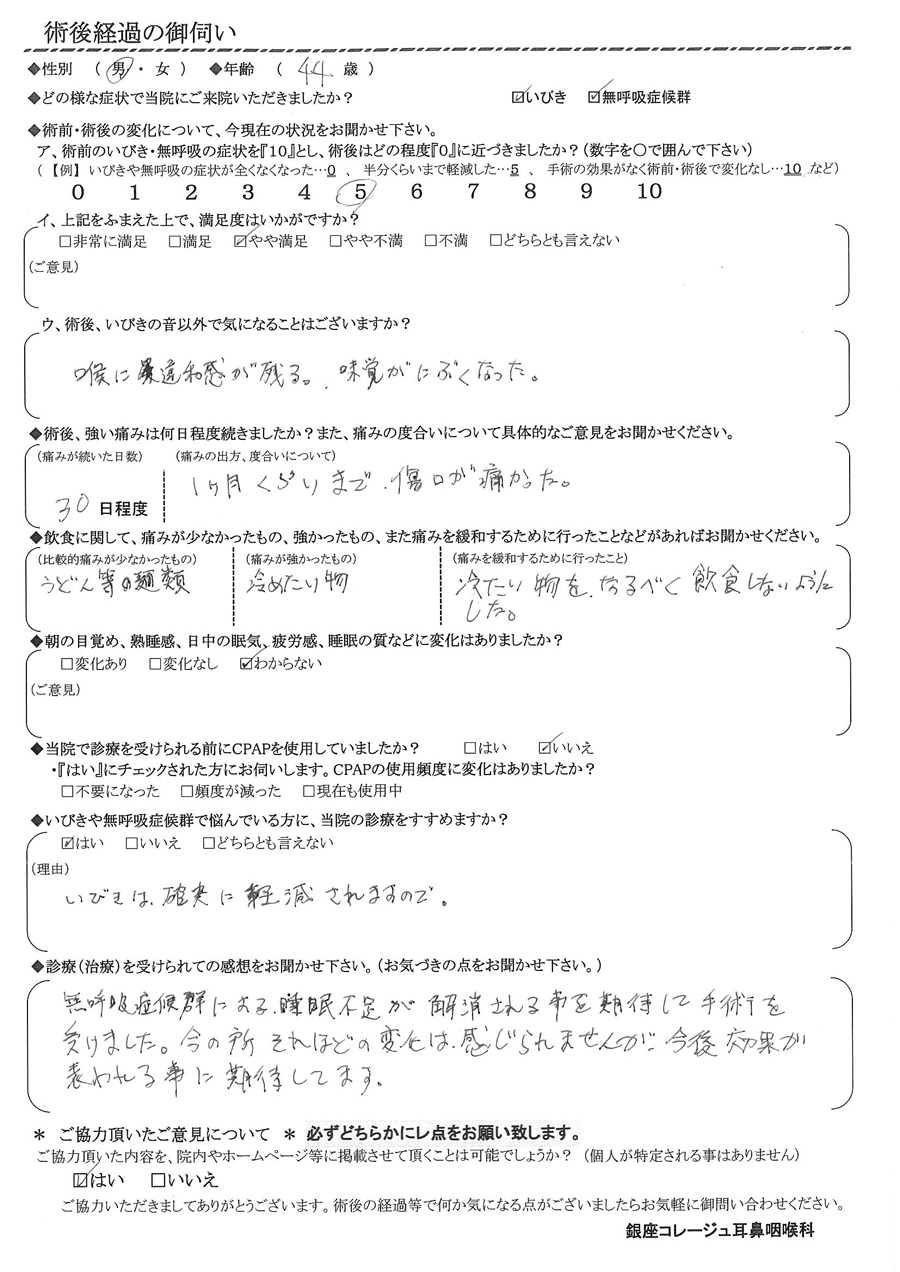 術後経過の御伺い
◆性別 （ 男 ・ 女 ） ◆年齢 （ 44 歳 ）
◆どの様な症状で当院にご来院いただきましたか？ ☑いびき ☑無呼吸症候群
◆術前・術後の変化について、今現在の状況をお聞かせ下さい。
ア、術前のいびき・無呼吸の症状を『10』とし、術後はどの程度『0』に近づきましたか？（数字を〇で囲んで下さい）
（【例】 いびきや無呼吸の症状が全くなくなった…0 、 半分くらいまで軽減した…5 、 手術の効果がなく術前・術後で変化なし…10 など）
0 1 2 3 4 5 6 7 8 9 10
イ、上記をふまえた上で、満足度はいかがですか？
□非常に満足 □満足 ☑やや満足 □やや不満 □不満 □どちらとも言えない
（ご意見）
ウ、術後、いびきの音以外で気になることはございますか？
喉に違和感が残る。、味覚がにぶくなった。
◆術後、強い痛みは何日程度続きましたか？また、痛みの度合いについて具体的なご意見をお聞かせください。
（痛みが続いた日数） （痛みの出方、度合いについて）
1ヶ月くらいまで、傷口が痛かった。
30 日程度
◆飲食に関して、痛みが少なかったもの、強かったもの、また痛みを緩和するために行ったことなどがあればお聞かせください。
（比較的痛みが少なかったもの） （痛みが強かったもの） （痛みを緩和するために行ったこと）
うどん等の麺類 冷めたい物 冷たい物を、なるべく飲食しないように
した。
◆朝の目覚め、熟睡感、日中の眠気、疲労感、睡眠の質などに変化はありましたか？
□変化あり □変化なし ☑わからない
（ご意見）
◆当院で診療を受けられる前にCPAPを使用していましたか？ □はい ☑いいえ
・『はい』にチェックされた方にお伺いします。CPAPの使用頻度に変化はありましたか？
□不要になった □頻度が減った □現在も使用中
◆いびきや無呼吸症候群で悩んでいる方に、当院の診療をすすめますか？
☑はい □いいえ □どちらとも言えない
（理由）
いびきは、確実に軽減されますので。
◆診療（治療）を受けられての感想をお聞かせ下さい。（お気づきの点をお聞かせ下さい。）
無呼吸症候群による、睡眠不足が解消される事を期待して手術を
受けました。今の所それほどの変化は、感じられませんが、今後効果が
表われる事に期待してます。
＊ ご協力頂いたご意見について ＊ 必ずどちらかにレ点をお願い致します。
ご協力頂いた内容を、院内やホームページ等に掲載させて頂くことは可能でしょうか？ （個人が特定される事はありません）
☑はい □いいえ
ご協力いただきましてありがとうございます。術後の経過等で何か気になる点がございましたらお気軽に御問い合わせください。
銀座コレージュ耳鼻咽喉科